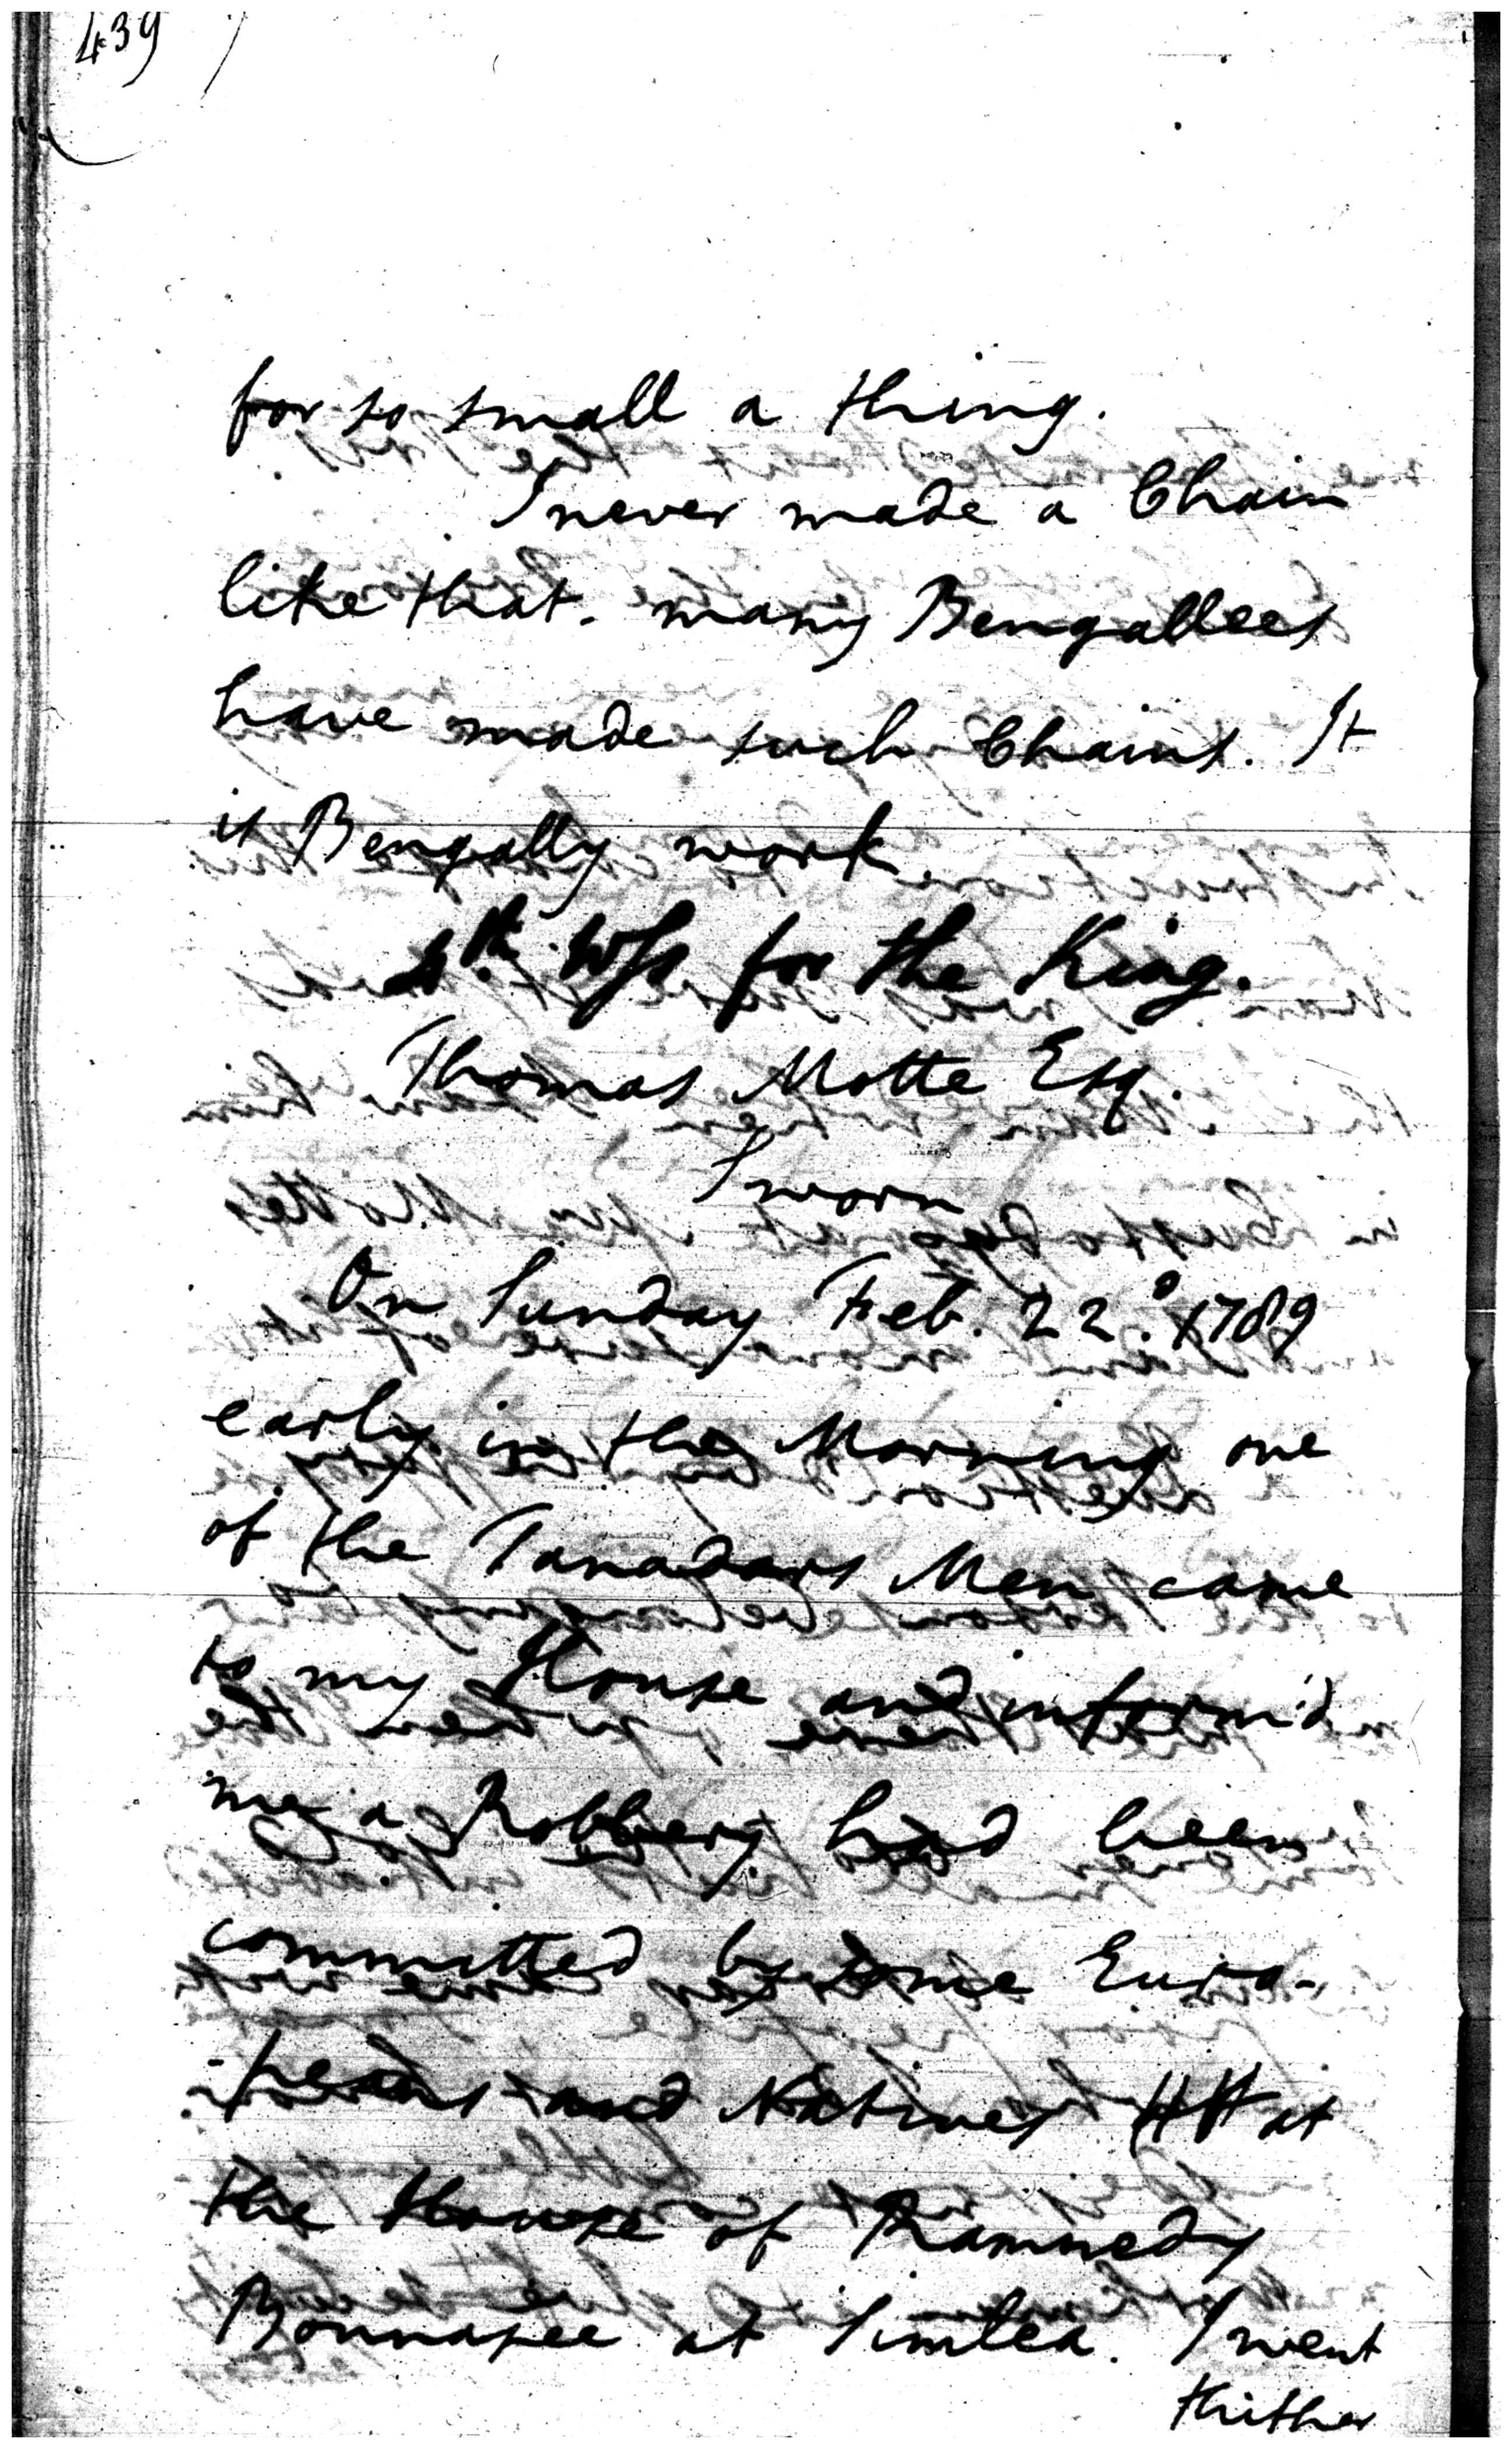 439
for so small a thing.
I never made a Chain
like that. many Bengallees
have made such Chains. It
is Bengally work.
Wss for the King.
Thomas Motte Esq.
Sworn
On Sunday Feb. 22.d 1789
early in the Morning one
of the Tanadars Men came
to my House and inform'd
me a Robbery had been
committed by some Euro-
-peans and Natives at
the House of Ramnedy
Bonnasee at Simlea. I went
thither